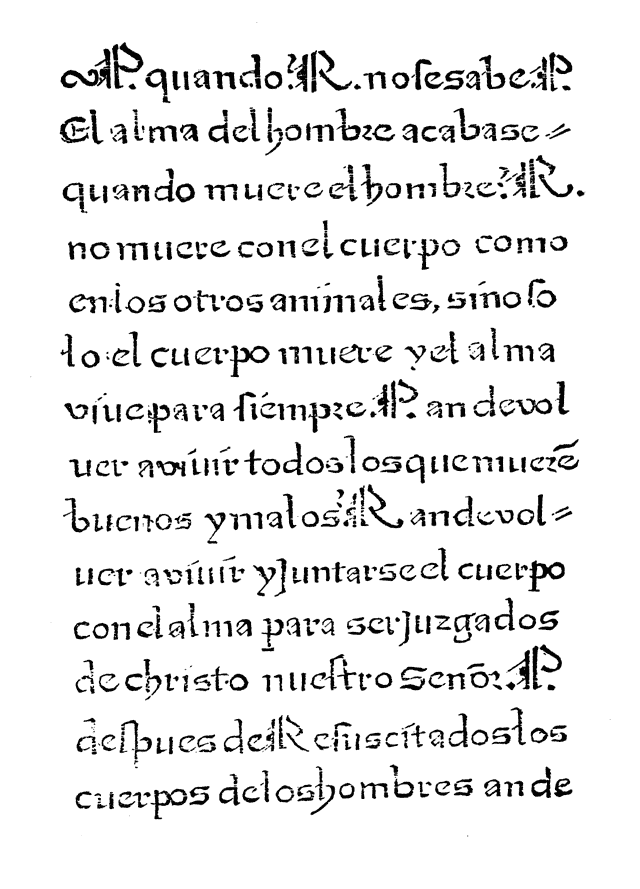 P. quando? R. no se sabe. P.
El alma del hombre acabase=
quando muere el hombre? R.
no muere con el cuerpo como
en los otros animales, sino so
lo el cuerpo muere y el alma
viue para siempre. P. an de vol
uer aviuir todos los que muerẽ
buenos y malos? R an de vol=
uer aviuir y Juntarse el cuerpo
con el alma para ser Juzgados
de christo nuestro Señor. P.
despues de Resuscitados los
cuerpos de los hombres an de